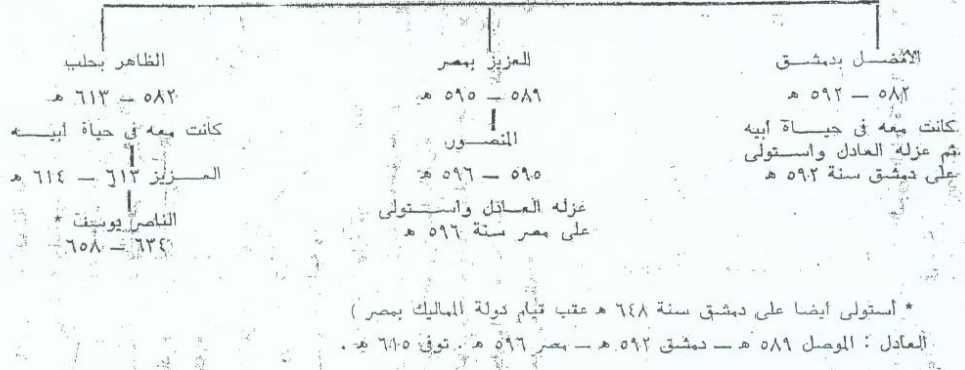 الأفضل بدمشق
٥٨٢ — ٥٩٢ هـ
كانت معه فى حياة أبيه
ثم عزله العادل واستولى
على دمشق سنة ٥٩٢ هـ
العزيز بمصر
٥٨٩ — ٥٩٥ هـ
المنصور
٥٩٥ — ٥٩٦ هـ
عزله العادل واستولى
على مصر سنة ٥٩٦ هـ
الظاهر بحلب
٥٨٢ — ٦١٣ هـ
كانت معه فى حياة أبيه
العزيز ٦١٣ — ٦١٤ هـ
الناصر يوسف *
٦٣٤ — ٦٥٨
* أستولى أيضا على دمشق سنة ٦٤٨ هـ عقب قيام دولة المماليك بمصر )
العادل : الموصل ٥٨٩ هـ — دمشق ٥٩٢ هـ — مصر ٥٩٦ هـ . توفى ٦١٥ هـ .